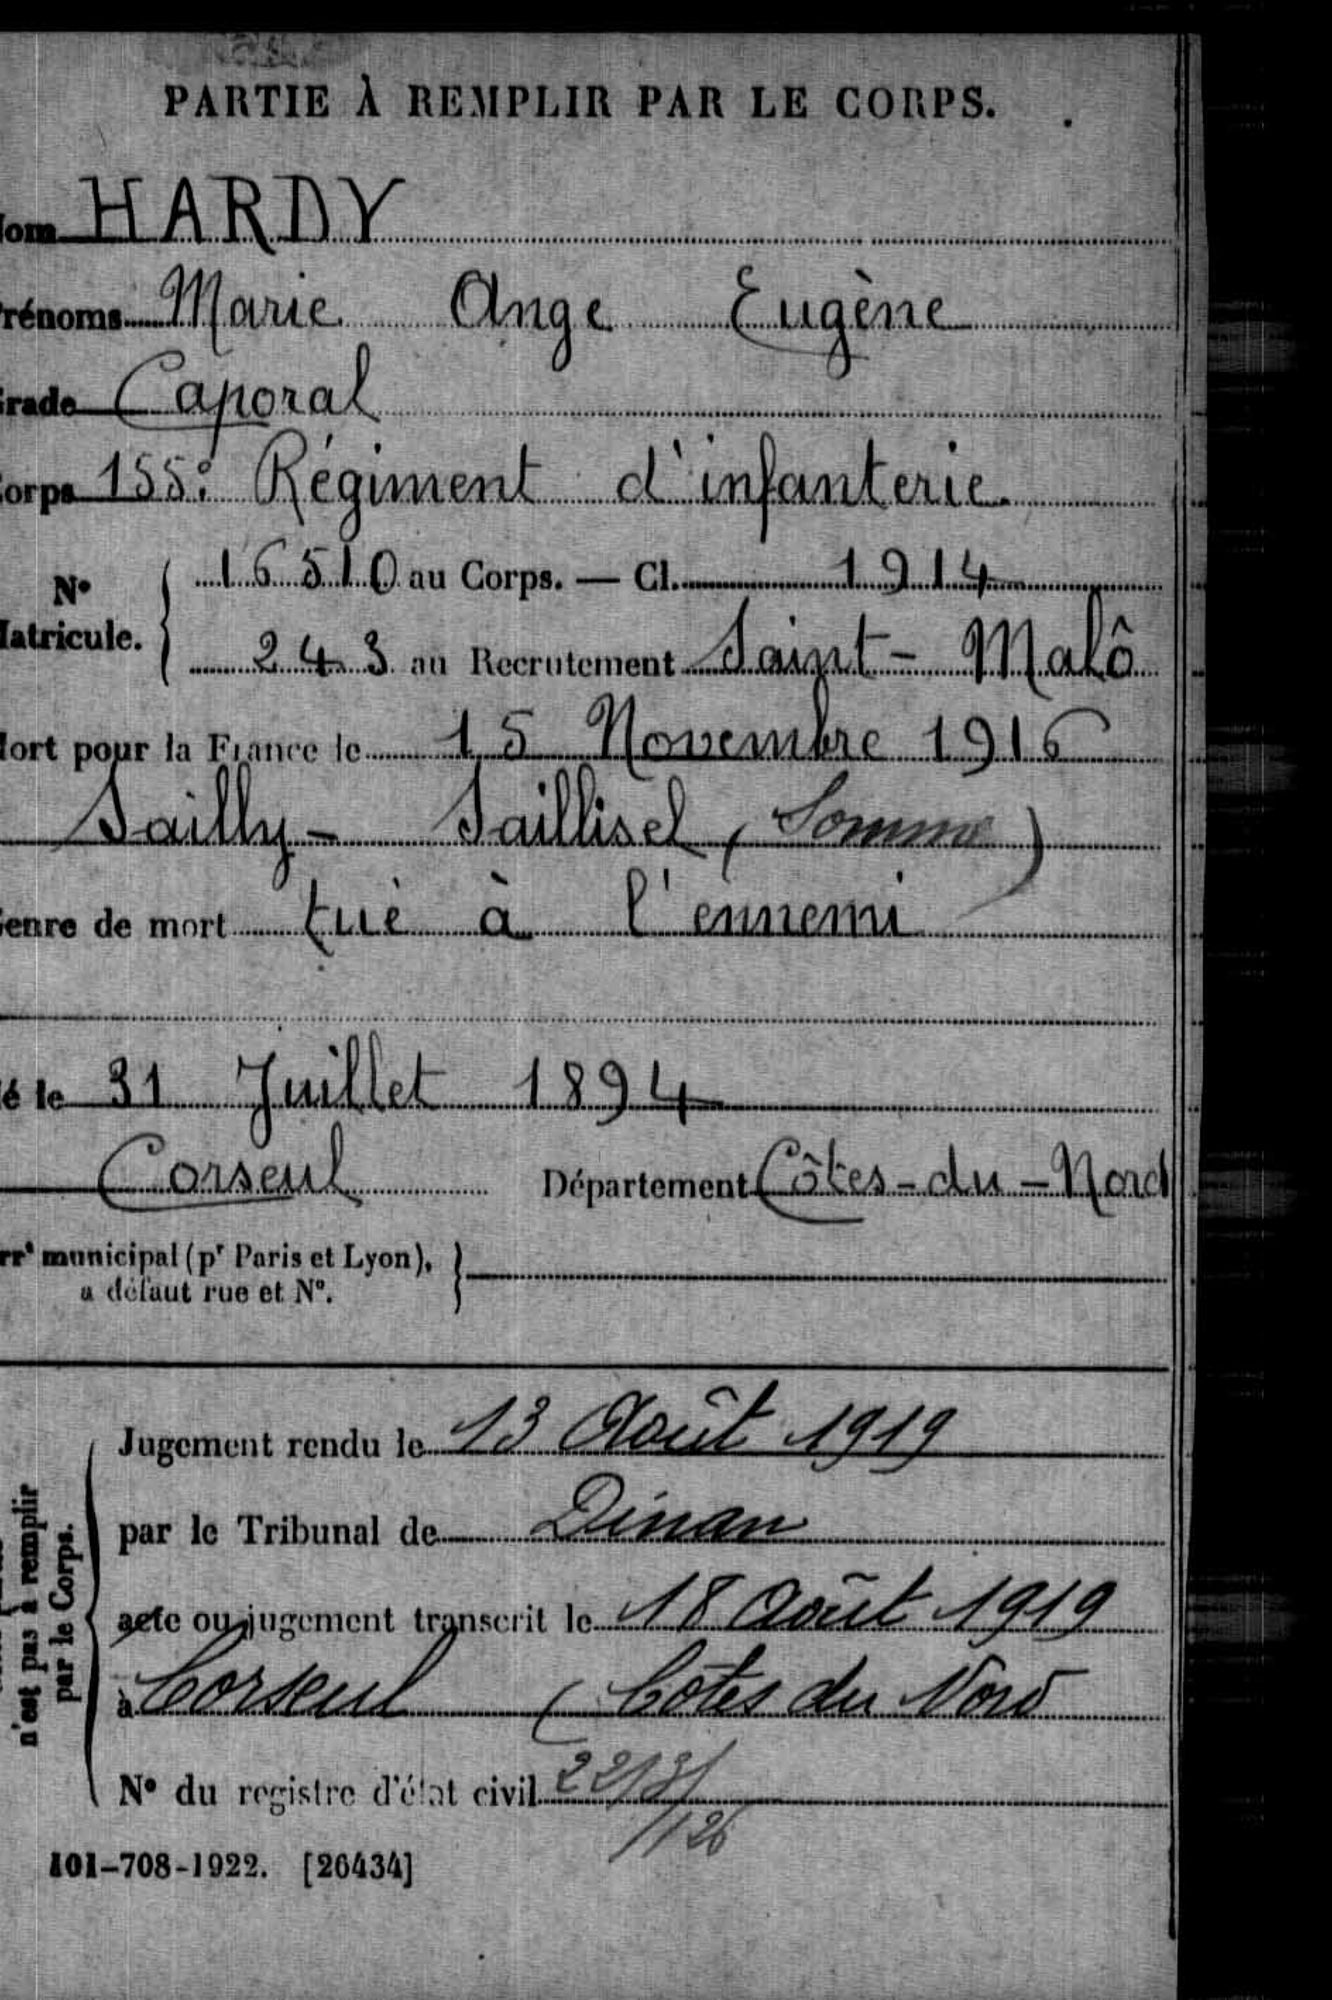 PARTIE À REMPLIR PAR LE CORPS.
Nom HARDY
Prénoms Marie Ange Eugène
Grade Caporal
Corps 155e Régiment d'infanterie.
N° Matricule. { 16510 au Corps. — Cl. 1914
243 au Recrutement Saint-Malô
Mort pour la France le 15 Novembre 1916
Sailly-Saillisel (Somme)
Genre de mort tué à l'ennemi
Né le 31 Juillet 1894
Corseul Département Côtes-du-Nord
Arrt municipal (pr Paris et Lyon), }
à défaut rue et N°.
Jugement rendu le 13 Août 1919
par le Tribunal de Dinan
acte ou jugement transcrit le 18 Août 1919
à Corseul (Côtes du Nord
N° du registre d'état civil
n'est pas à remplir
par le Corps.
101-708-1922. [26434]